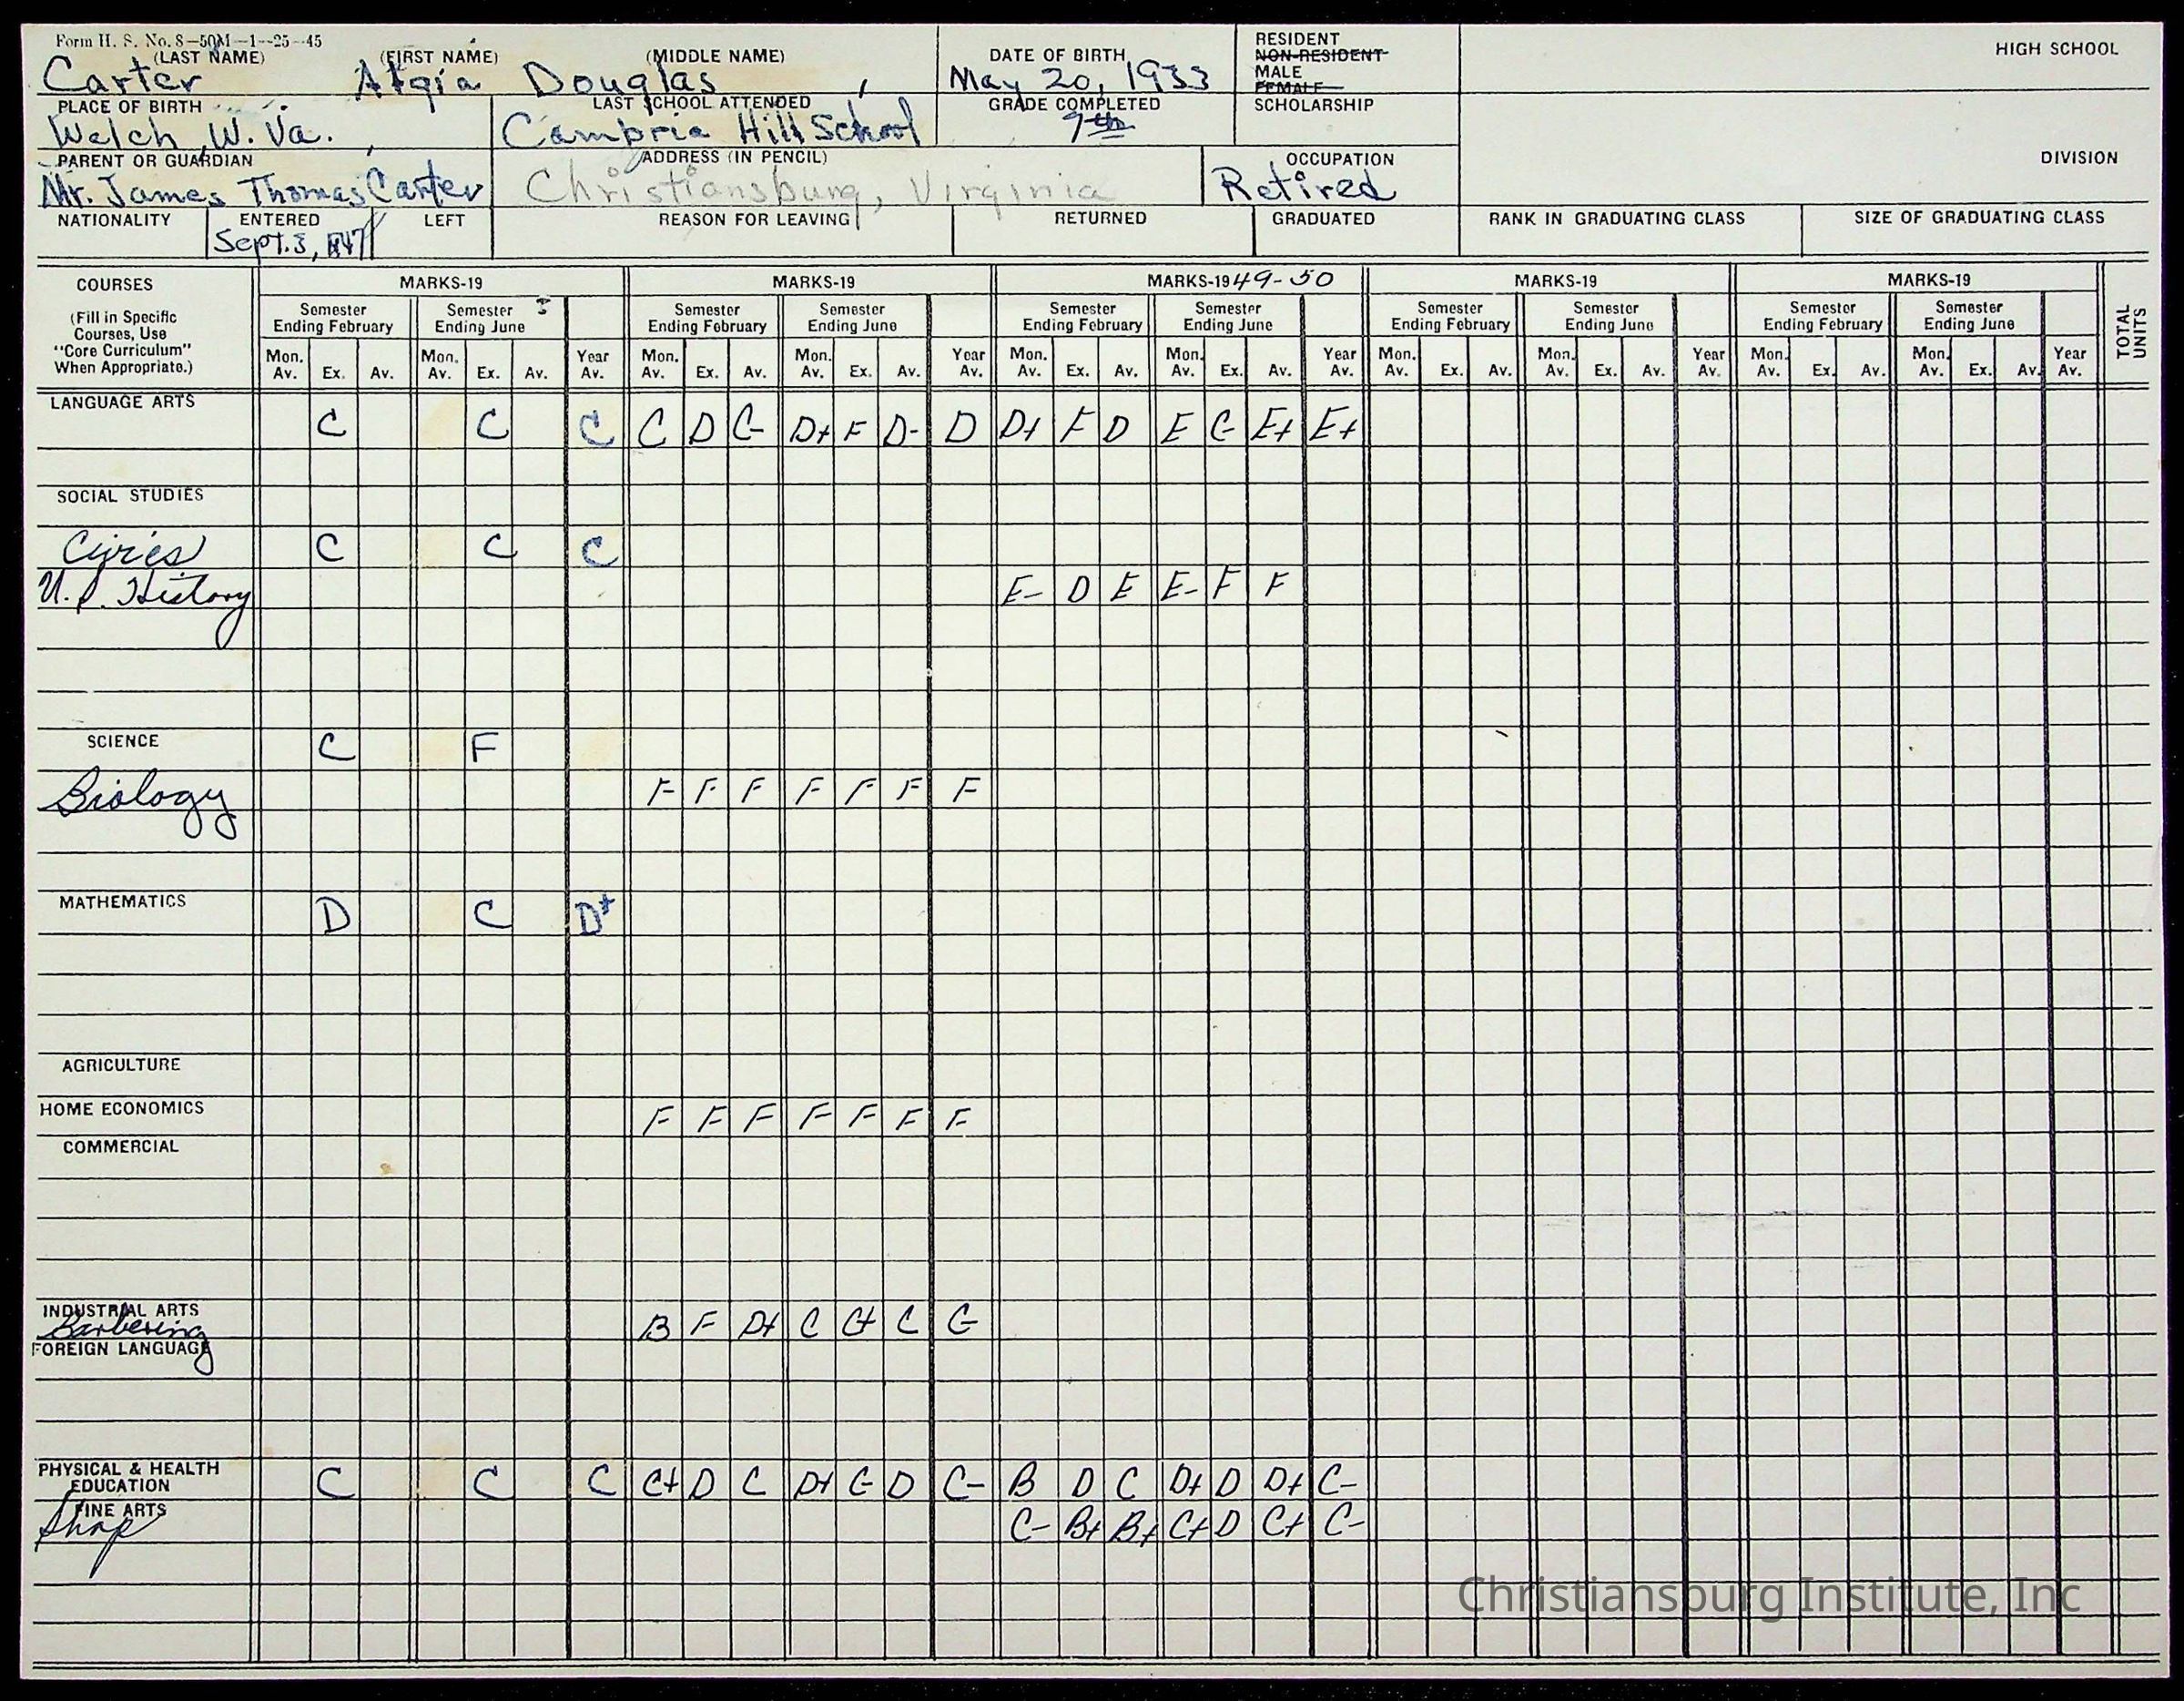 Form H. S. No. 8—50M—1--25--45
(LAST NAME) (FIRST NAME) (MIDDLE NAME) DATE OF BIRTH RESIDENT HIGH SCHOOL
NON-RESIDENT
Carter Douglas , May 20, 1933 MALE
FEMALE
PLACE OF BIRTH LAST SCHOOL ATTENDED GRADE COMPLETED SCHOLARSHIP
Welch, W. Va. Cambria Hill School
PARENT OR GUARDIAN ADDRESS (IN PENCIL) OCCUPATION DIVISION
Mr. James Thomas Carter Christiansburg, Virginia Retired
NATIONALITY ENTERED LEFT REASON FOR LEAVING RETURNED GRADUATED RANK IN GRADUATING CLASS SIZE OF GRADUATING CLASS
Sept. 3,
COURSES MARKS-19 MARKS-19 MARKS-1949-50 MARKS-19 MARKS-19 TOTAL UNITS
(Fill in Specific Semester Semester Semester Semester Semester Semester Semester Semester Semester Semester
Courses, Use Ending February Ending June Ending February Ending June Ending February Ending June Ending February Ending June Ending February Ending June
"Core Curriculum" Mon. Mon. Year Mon. Mon. Year Mon. Mon. Year Mon. Mon. Year Mon. Mon. Year
When Appropriate.) Av. Ex. Av. Av. Ex. Av. Av. Av. Ex. Av. Av. Ex. Av. Av. Av. Ex. Av. Av. Ex. Av. Av. Av. Ex. Av. Av. Ex. Av. Av. Av. Ex. Av. Av. Ex. Av. Av.
LANGUAGE ARTS C C C C D C- D+ F D- D D+ F D E C- E+ E+
SOCIAL STUDIES
Civics C C C
U.S. History E- D E E- F F
SCIENCE C F
Biology F F F F F F F
MATHEMATICS D C D+
AGRICULTURE
HOME ECONOMICS F F F F F F F
COMMERCIAL
INDUSTRIAL ARTS
Barbering B F D+ C C+ C C-
FOREIGN LANGUAGE
PHYSICAL & HEALTH
EDUCATION C C C C+ D C D+ C- D C- B D C D+ D D+ C-
FINE ARTS
Shop C- B+ B+ C+ D C+ C-
Christiansburg Institute, Inc